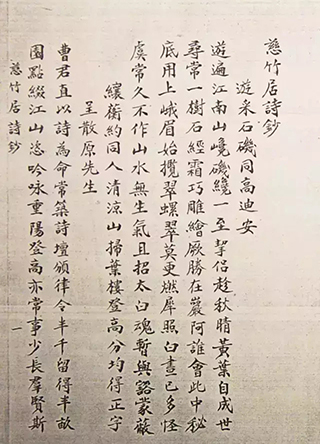 慈竹居詩鈔
遊采石磯同高迪安
遊遍江南山嶢磯纔一至挈侶趁秋晴黃葉自成世
尋常一樹石經霜巧雕繪厥勝在巖阿誰會此中秘
底用上峨眉始攬翠螺翠莫更燃犀照白晝已多怪
虞常久不作山水無生氣且招太白魂暫與豁蒙蔽
纕蘅約同人清涼山掃葉樓登高分均得正字
呈散原先生
曹君直以詩為命常築詩壇頒律令半千留得半畝
園點綴江山恣吟詠重陽登高亦常事少長羣賢斯
慈竹居詩鈔
一